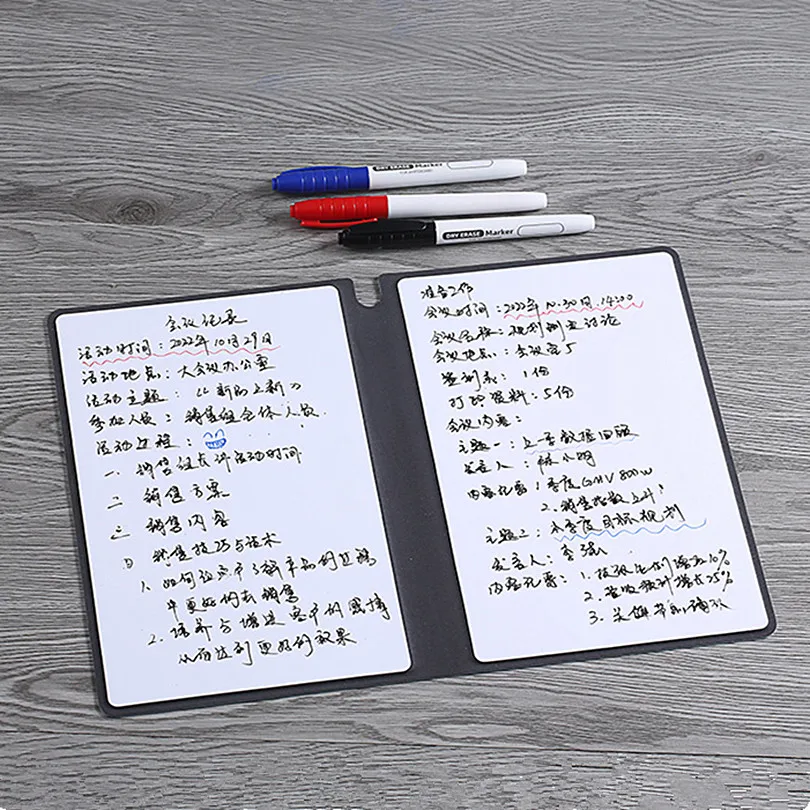 DRY ERASE Marker
DRY ERASE Marker
会议记录
活动时间：2022年10月29日
活动地点：大会议办公室
活动主题：《新的上新》
参加人员：销售组全体人员
活动过程：
一 销售组长讲活动时间
二 销售方案
三 销售内容
四 销售技巧与话术
1. 如何让客户了解产品的过程
中更好的去销售
2. 培养与增进客户的感情
从而达到更好的效果
准备工作
会议时间：2022年.10.30日.14:00
会议名称：规划 讨论
会议地点：会议室5
签到表：1份
打印资料：5份
会议内容：
主题一：上一季数据回顾
发言人：陈小明
内容纪要：1.季度GMV 800w
2. 销售指数上升
主题二：本季度目标规划
发言人：李强
内容纪要：1. 增加10%
2. 增长25%
3.